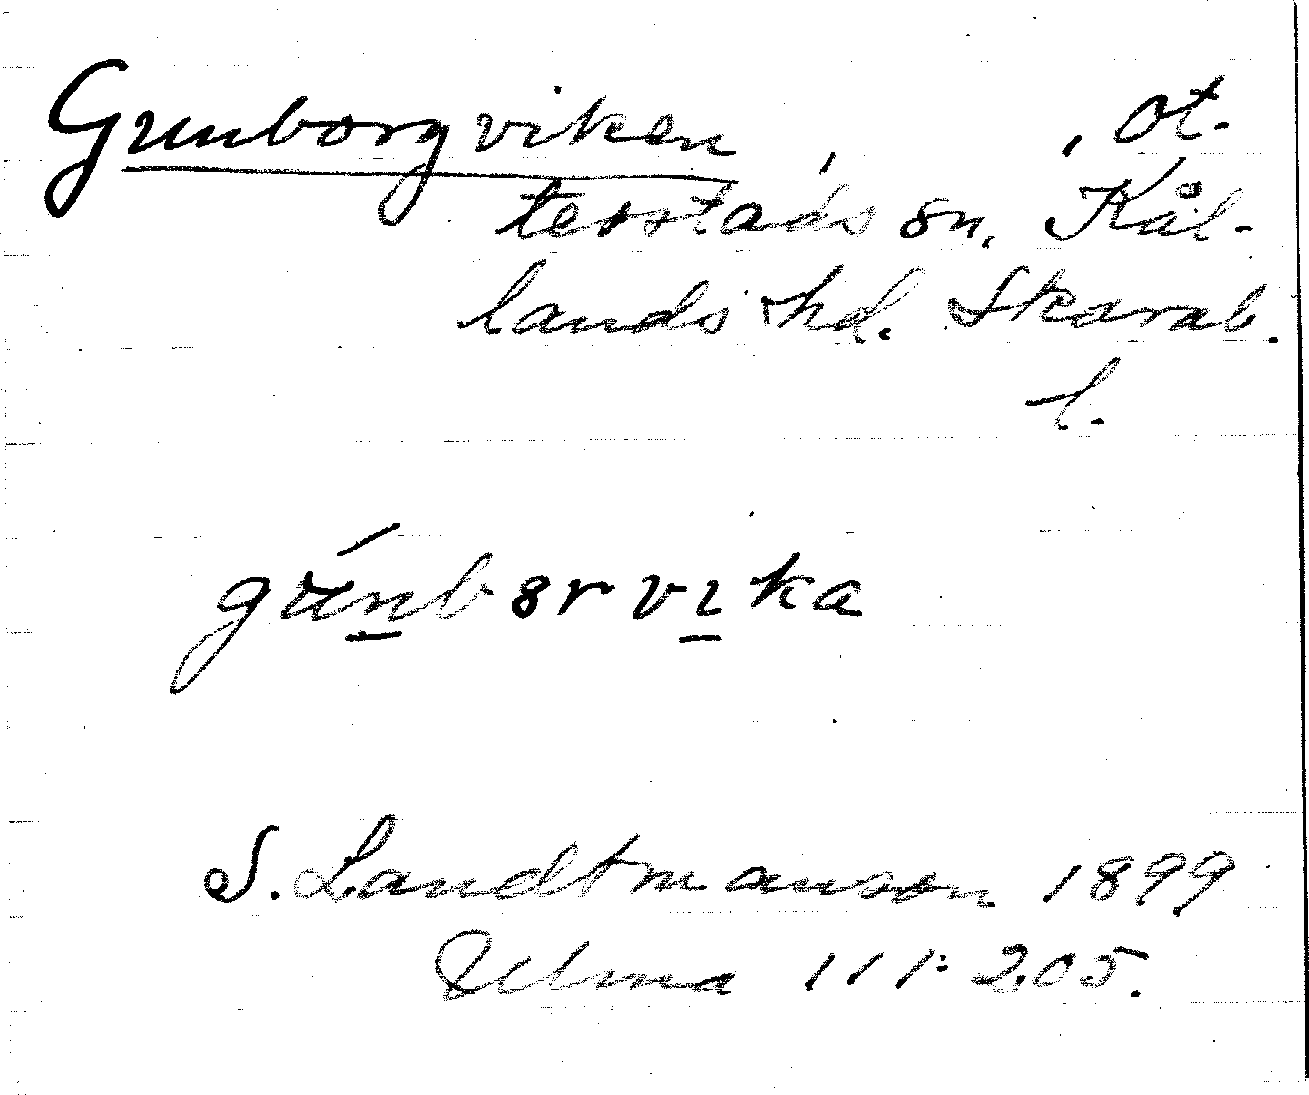 Gunborgviken, , Ot-
terstads sn, Kål-
lands hd. Skarab.
l.
gúnbərvıka
S. Landtmanson 1899
Ulma 111:205.